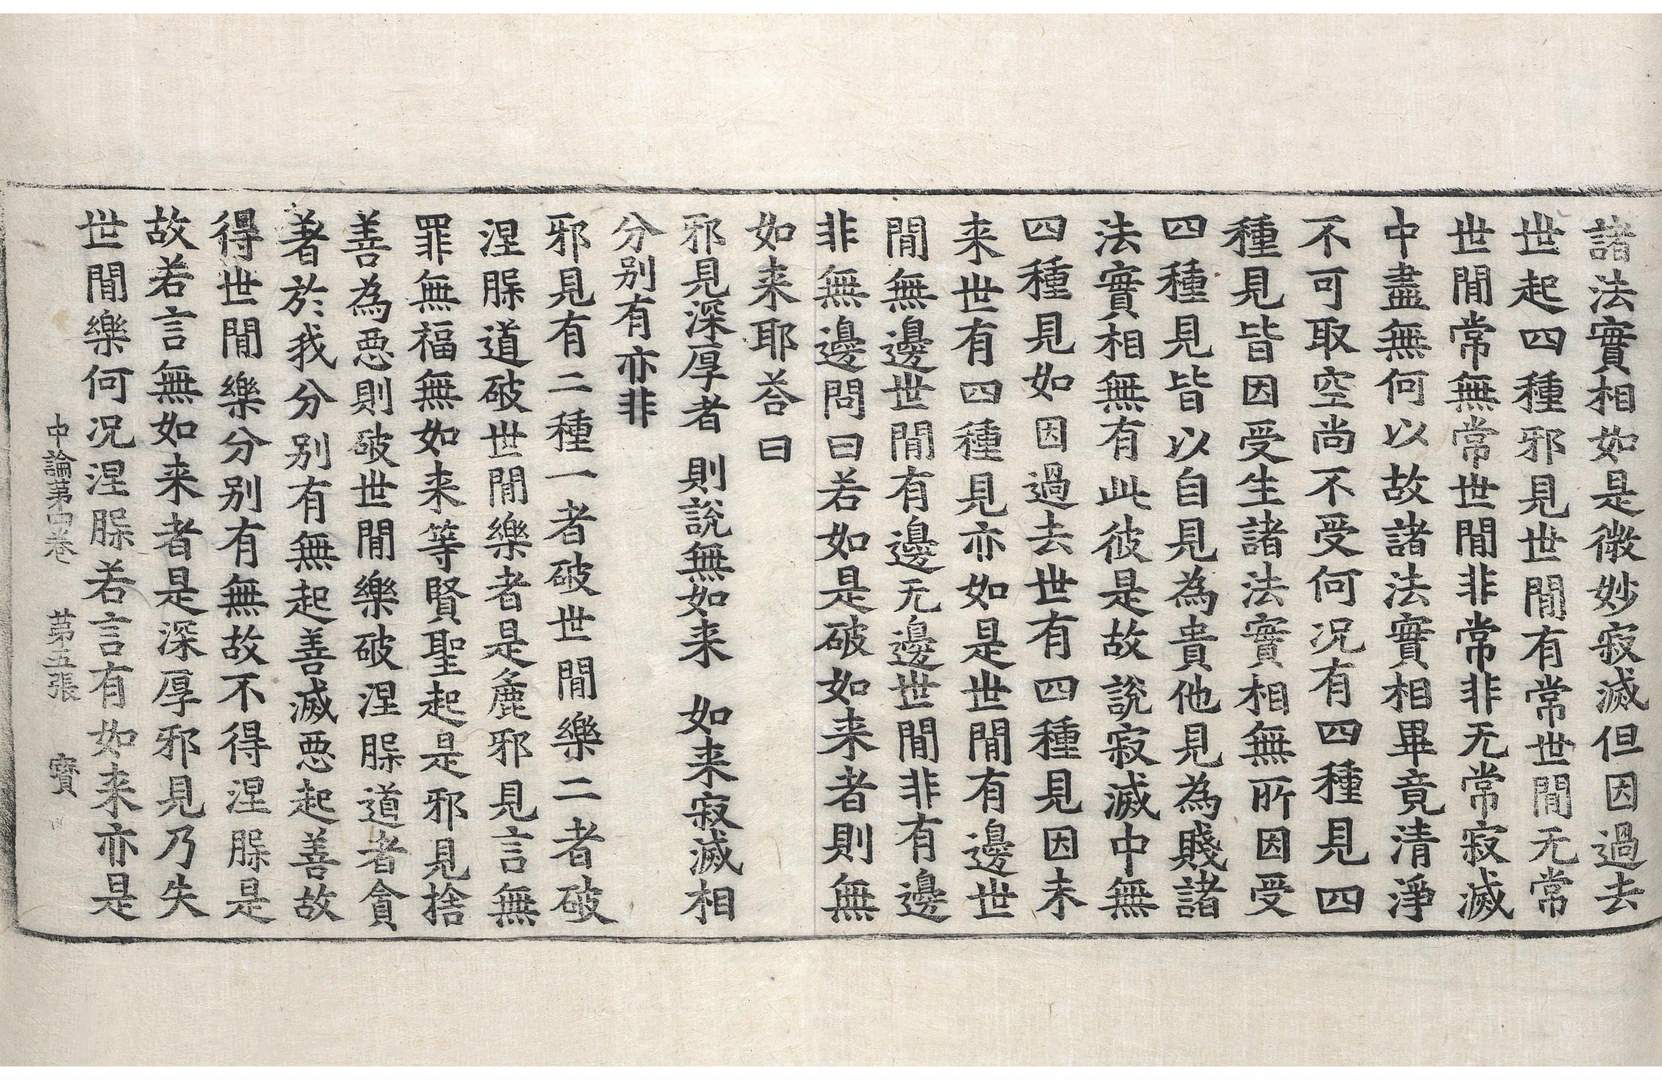 諸法實相如是微妙寂滅但因過去
世起四種邪見世間有常世間无常
世間常無常世間非常非无常寂滅
中盡無何以故諸法實相畢竟清淨
不可取空尚不受何况有四種見四
種見皆因受生諸法實相無所因受
四種見皆以自見為貴他見為賤諸
法實相無有此彼是故說寂滅中無
四種見如因過去世有四種見因未
来世有四種見亦如是世間有邊世
間無邊世間有邊无邊世間非有邊
非無邊問曰若如是破如来者則無
如来耶荅曰
邪見深厚者 則說無如来 如来寂滅相
分別有亦非
邪見有二種一者破世間樂二者破
涅槃道破世間樂者是麁邪見言無
罪無福無如来等賢聖起是邪見捨
善為惡則破世間樂破涅槃道者貪
著於我分別有無起善滅惡起善故
得世間樂分別有無故不得涅槃是
故若言無如来者是深厚邪見乃失
世間樂何况涅槃若言有如来亦是
中論第四卷 第五張 寶